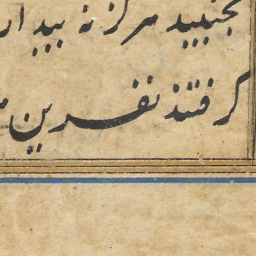 بجنبید مرگز نه بیدار
گرفتند نفرین